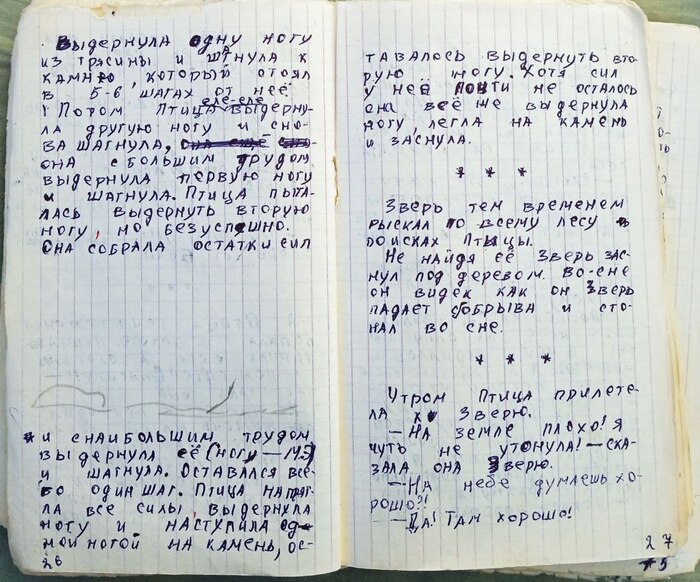 Выдернула одну ногу
из трясины и шагнула к
камню, который стоял
в 5-6 шагах от неё
Потом Птица еле-еле выдерну-
ла другую ногу и сно-
ва шагнула. она ещё
она с большим трудом
выдернула первую ногу
и шагнула. Птица пыта-
лась выдернуть вторую
ногу, но безуспешно.
Она собрала остатки сил
* и снаибольшим трудом
выдернула её (ногу — МЭ)
и шагнула. Оставался все-
го один шаг. Птица напряг-
ла все силы, выдернула
ногу и наступила од-
ной ногой на камень, ос-
26
тавалось выдернуть вто-
рую ногу. Хотя сил
у неё почти не осталось
она всё же выдернула
ногу, легла на камень
и заснула.
* * *
Зверь тем временем
рыскал по всему лесу в
поисках Птицы.
Не найдя её Зверь зас-
нул под деревом. Во-сне
он видек как он Зверь
падает собрыва и сто-
нал во сне.
* * *
Утром Птица прилете-
ла к Зверю.
—На земле плохо! Я
чуть не утонула! —ска-
зала она Зверю.
—На небе думаешь хо-
рошо?!
—Да! Там хорошо!
27
75